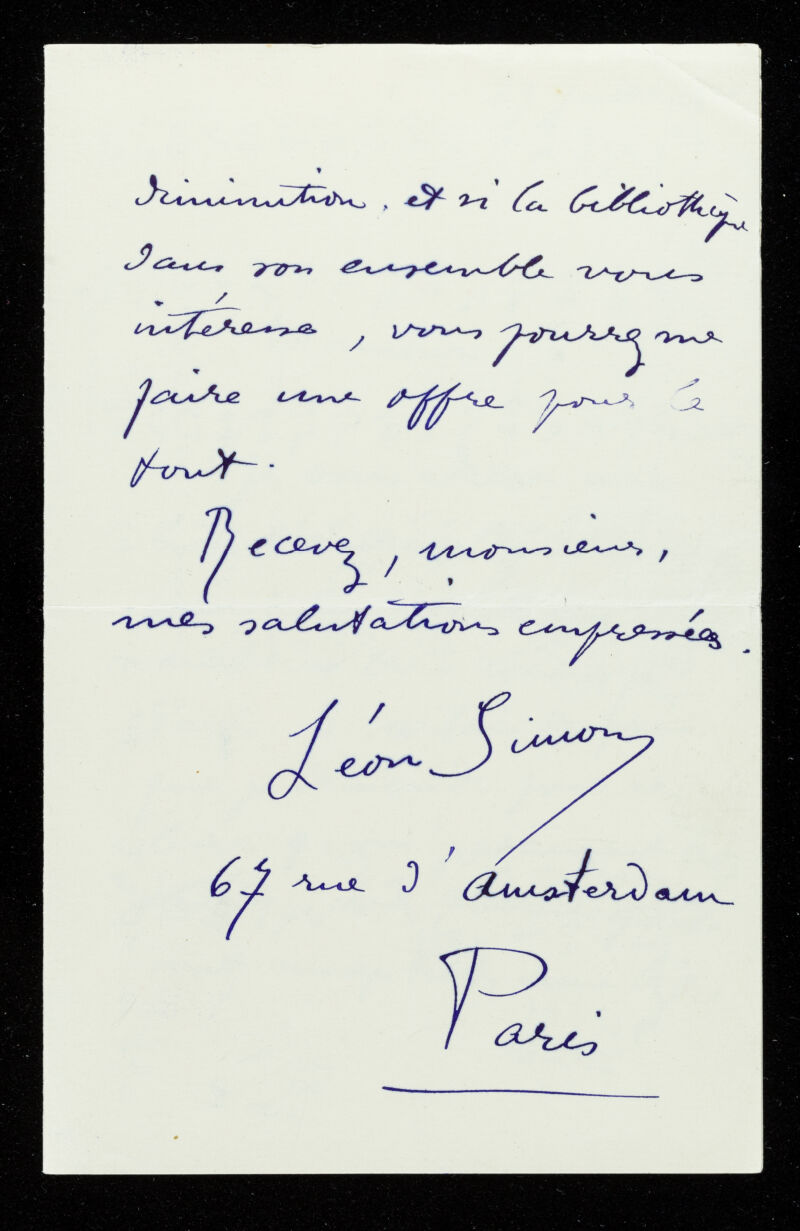 diminution. et si la bibliothèque
dans son ensemble vous
intéresse, vous pourrez me
faire une offre pour le
tout.
Recevez, monsieur,
mes salutations empressées.
Léon Simon
67 rue d'Amsterdam
Paris